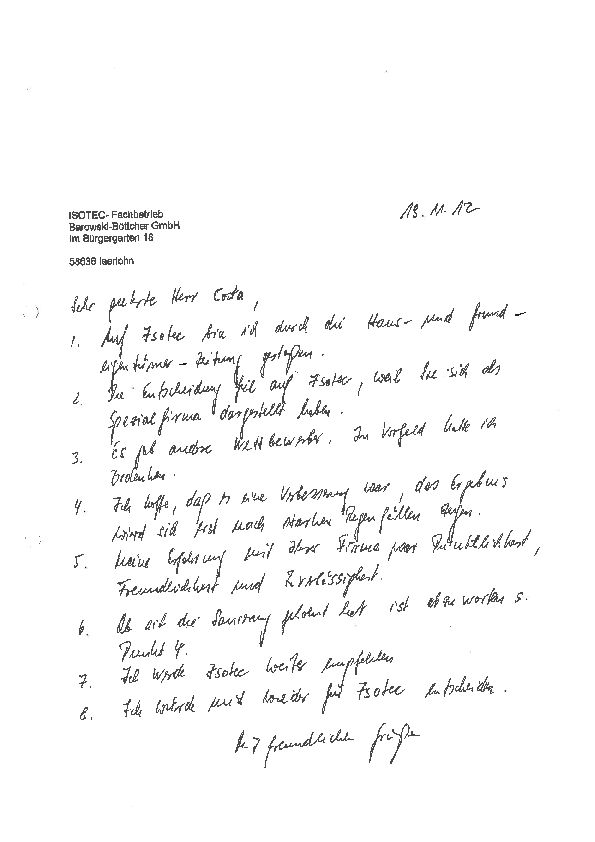 ISOTEC- Fachbetrieb
Barowski-Böttcher GmbH
Im Bürgergarten 16
58636 Iserlohn
19.11.12
Sehr geehrte Herr Costa,
1. Auf Isotec bin ich durch die Haus- und Grund-
eigentümer-Zeitung gestoßen.
2. Die Entscheidung fiel auf Isotec, weil Sie sich als
Spezialfirma dargestellt haben.
3. Es gab andere Wettbewerber. Im Vorfeld hatte ich
Bedenken.
4. Ich hoffe, daß es eine Verbesserung war, das Ergebnis
wird sich erst nach starken Regenfällen zeigen.
5. Meine Erfahrung mit Ihrer Firma war Pünktlichkeit,
Freundlichkeit und Zuverlässigkeit.
6. Ob sich die Sanierung gelohnt hat ist abzuwarten s.
Punkt 4.
7. Ich werde Isotec weiter empfehlen
8. Ich würde mich wieder für Isotec entscheiden.
Mit freundlichen Grüßen